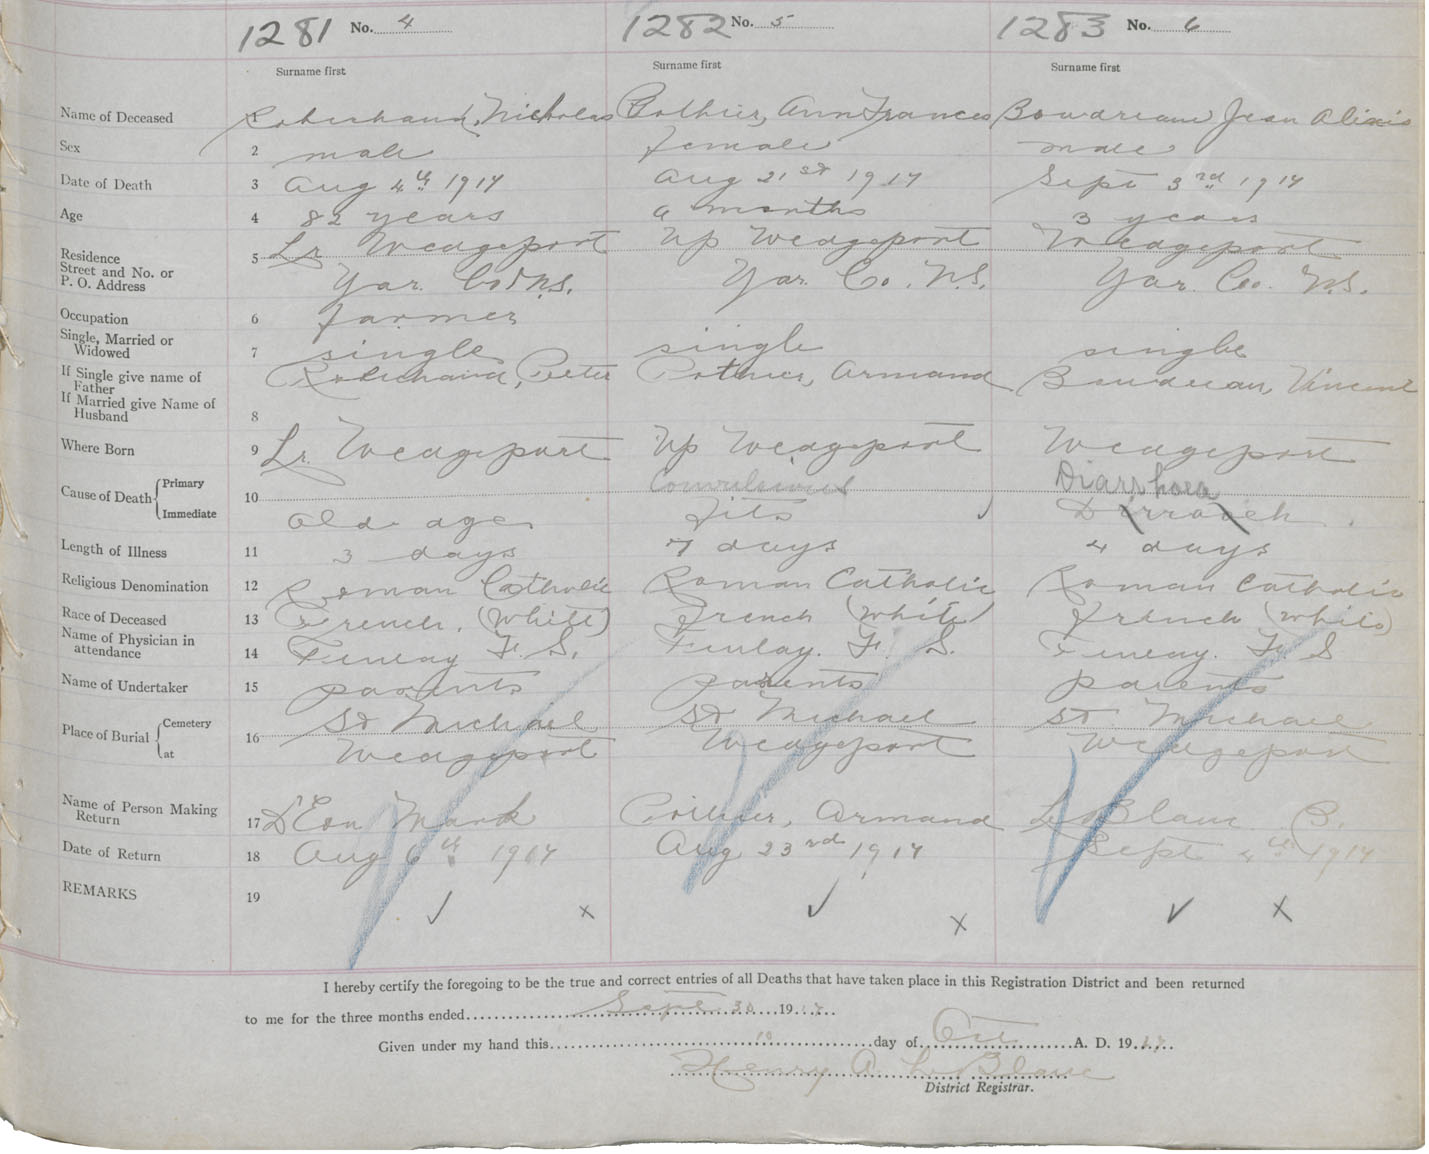 1281 No. 4 1282 No. 5 1283 No. 6
Surname first Surname first Surname first
Name of Deceased 1 Robichaud, Nicholas Pothier, Ann Frances Boudreau Jean Alixis
Sex 2 male female male
Date of Death 3 Aug 4th 1917 Aug 21st 1917 Sept 3rd 1917
Age 4 82 years 9 months 3 years
Residence Street and No. or P. O. Address 5 Lr Wedgeport Up Wedgeport Wedgeport
Yar. Co N.S. Yar. Co. N.S. Yar. Co. N.S.
Occupation 6 farmer
Single, Married or Widowed 7 single single single
If Single give name of Father Robichaud, Peter Pothier, Armand Boudreau, Vincent
If Married give Name of Husband 8
Where Born 9 Lr. Wedgeport Up Wedgeport Wedgeport
Cause of Death Primary 10 Convulsions Diarrhoea
Immediate Old age fits
Length of Illness 11 3 days 7 days 4 days
Religious Denomination 12 Roman Catholic Roman Catholic Roman Catholic
Race of Deceased 13 French, (White) French (White) French (White)
Name of Physician in attendance 14 Finlay F. S. Finlay. F. S. Finlay. F. S
Name of Undertaker 15 parents parents parents
Place of Burial Cemetery 16 St Michael St Michael St. Michael
at Wedgeport Wedgeport Wedgeport
Name of Person Making Return 17 D'Eon Mark Pothier, Armand LeBlanc B.
Date of Return 18 Aug 6th 1917 Aug 23rd 1917 Sept 4th 1917
REMARKS 19
I hereby certify the foregoing to be the true and correct entries of all Deaths that have taken place in this Registration District and been returned
to me for the three months ended Sept. 30 1917
Given under my hand this 10 day of Oct A. D. 1917
Henry A. LeBlanc
District Registrar.